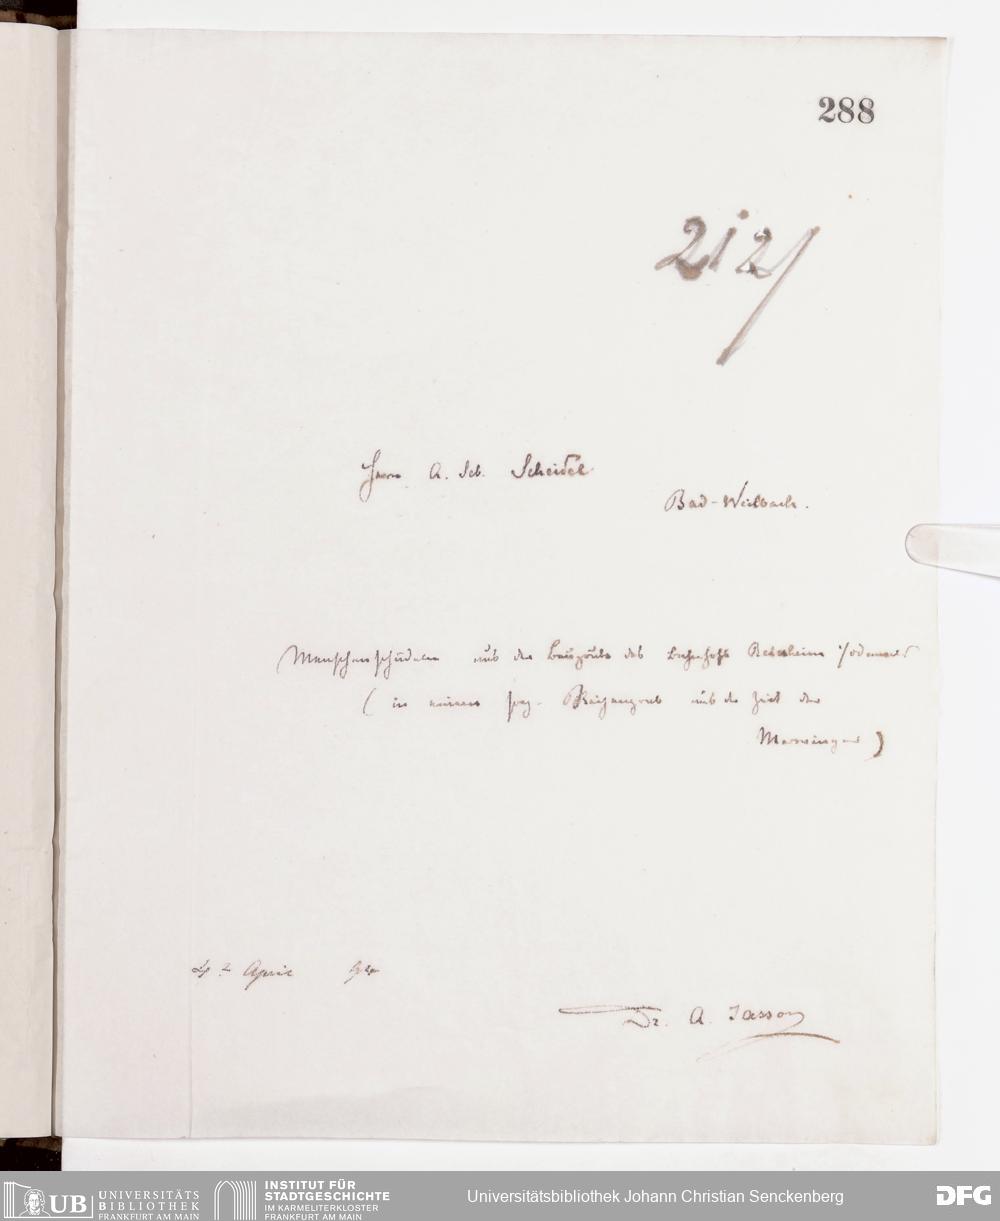 288
212/
Herrn A. Seb. Scheidel
Bad-Weilbach.
Menschenschädel aus der Baugrube des Bahnhofs
(in einem sog. Reihengrab aus der Zeit der
Merovinger)
4t April 94
Dr. A. Jassoy
UB UNIVERSITÄTS
BIBLIOTHEK
FRANKFURT AM MAIN
INSTITUT FÜR
STADTGESCHICHTE
IM KARMELITERKLOSTER
FRANKFURT AM MAIN
Universitätsbibliothek Johann Christian Senckenberg
DFG